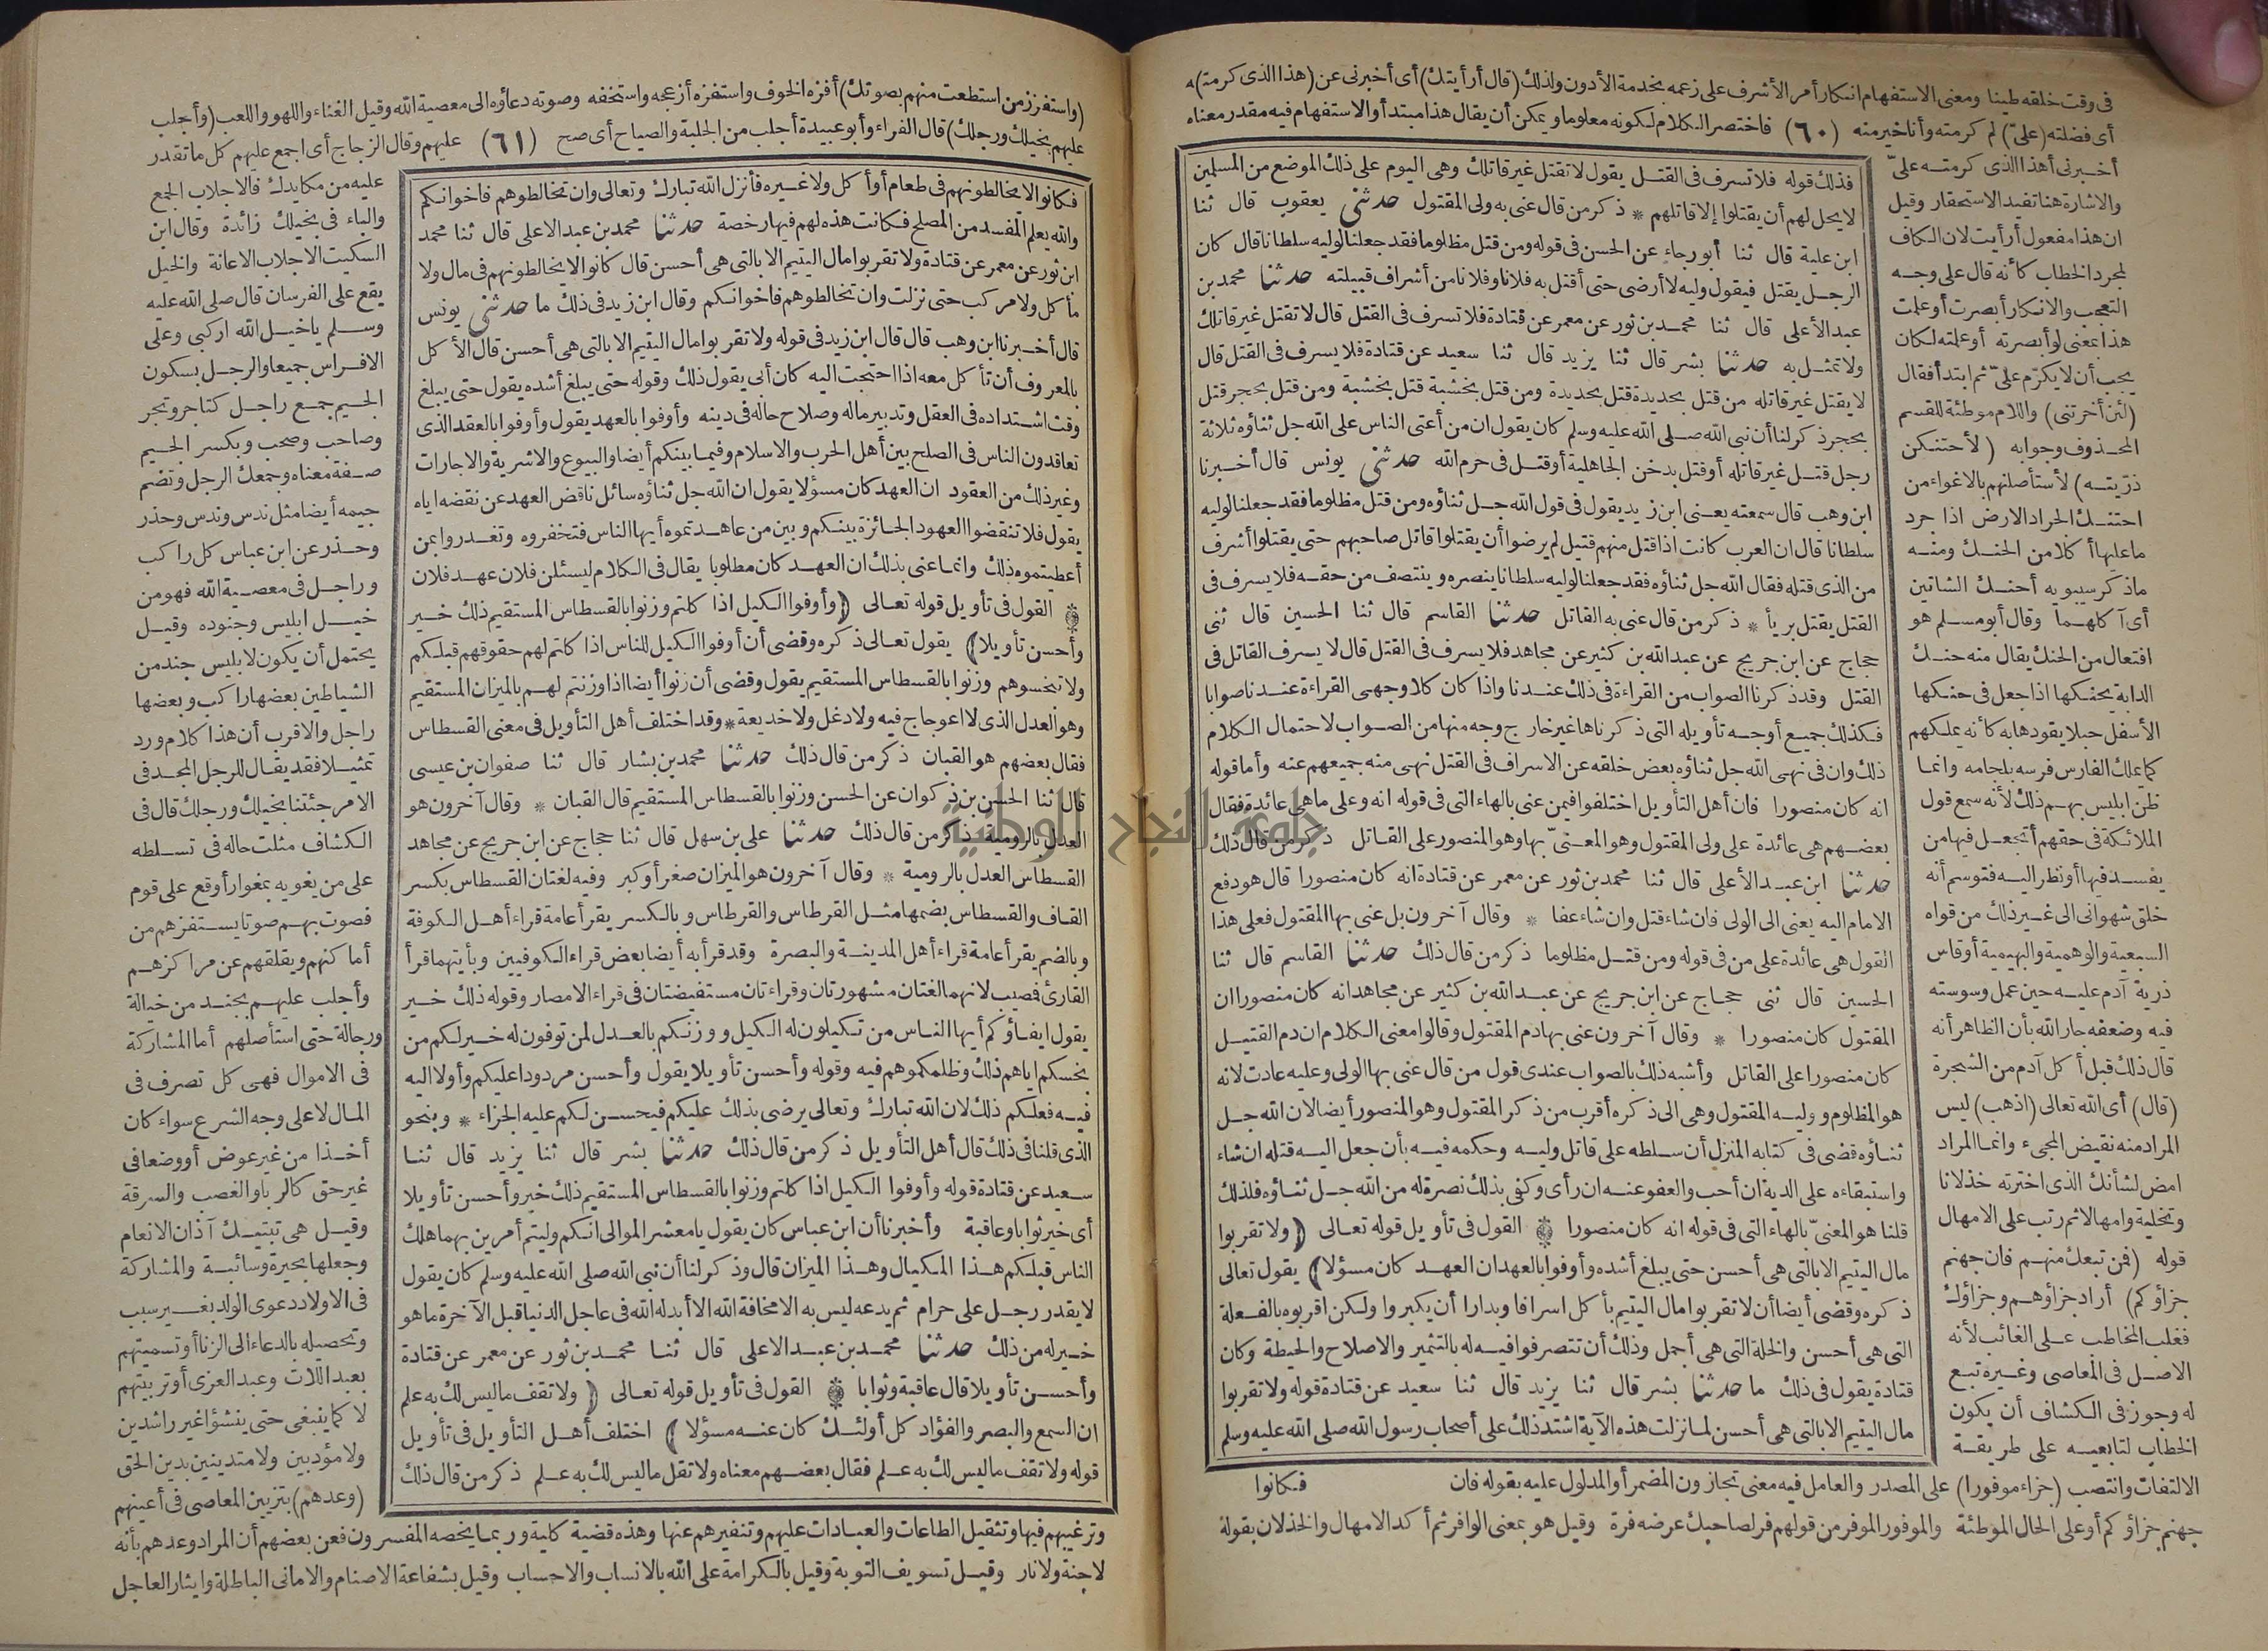 فى وقت خلقه طينا ومعنى الاستفهام انكار أمر الأشرف على زعمه بخدمة الأدون ولذلك (قال أرأيتك) أى أخبرنى عن (هذا الذى كرمت) ه
أى فضلته (علىّ) لم كرمته وأنا خير منه (٦٠) فاختصر الكلام لكونه معلوما ويمكن أن يقال هذا مبتدأ والاستفهام فيه مقدر معناه
أخبرنى أهذا الذى كرمته علىّ
والاشارة هنا تفيد الاستحقار وقيل
ان هذا مفعول أرأيت لان الكاف
لمجرد الخطاب كأنه قال على وجه
التعجب والانكار أبصرت أو علمت
هذا بمعنى لو أبصرته أو علمته لكان
يجب أن لا يكرّم علىّ ثم ابتدأ فقال
(لئن أخرتنى) واللام موطئة للقسم
المحذوف وجوابه (لأحتنكن
ذرّيته) لأستأصلنهم بالاغواء من
احتنك الجراد الارض اذا جرد
ما عليها أكلا من الحنك ومنه
ماذكر سيبويه أحنك الشاتين
أى آكلهما وقال أبو مسلم هو
افتعال من الحنك يقال منه حنك
الدابة يحنكها اذا جعل فى حنكها
الأسفل حبلا يقودها به كأنه يملكهم
كما يملك الفارس فرسه بلجامه وانما
ظن ابليس بهم ذلك لأنه سمع قول
الملائكة فى حقهم أتجعل فيها من
يفسد فيها أو نظر اليه فتوسم أنه
خلق شهوانى الى غير ذلك من قواه
السبعية والوهمية والبهيمية أو قاس
ذرية آدم عليه حين عمل وسوسته
فيه وضعفه جار الله بأن الظاهر أنه
قال ذلك قبل أكل آدم من الشجرة
(قال) أى الله تعالى (اذهب) ليس
المراد منه نقيض المجىء وانما المراد
امض لشأنك الذى اخترته خذلانا
وتخلية وامهالا ثم رتب على الامهال
قوله (فمن تبعك منهم فان جهنم
جزاؤكم) أراد جزاؤهم وجزاؤك
فغلب المخاطب على الغائب لأنه
الاصل فى المعاصى وغيره تبع
له وجوز فى الكشاف أن يكون
الخطاب لتابعيه على طريقة
الالتفات وانتصب (جزاء موفورا) على المصدر والعامل فيه معنى تجازون المضمر أو المدلول عليه بقوله فان
جهنم جزاؤكم أو على الحال الموطئة والموفور الموفر من قولهم فر لصاحبك عرضه فرة وقيل هو بمعنى الوافر ثم أكد الامهال والخذلان بقوله
فذلك قوله فلا تسرف فى القتل يقول لا تقتل غير قاتلك وهى اليوم على ذلك الموضع من المسلمين
لا يحل لهم أن يقتلوا إلا قاتلهم * ذكر من قال عنى به ولى المقتول حدثنى يعقوب قال ثنا
ابن علية قال ثنا أبو رجاء عن الحسن فى قوله ومن قتل مظلوما فقد جعلنا لوليه سلطانا قال كان
الرجل يقتل فيقول وليه لا أرضى حتى أقتل به فلانا وفلانا من أشراف قبيلته حدثنا محمد بن
عبد الأعلى قال ثنا محمد بن ثور عن معمر عن قتادة فلا تسرف فى القتل قال لا تقتل غير قاتلك
ولا تمثل به حدثنا بشر قال ثنا يزيد قال ثنا سعيد عن قتادة فلا يسرف فى القتل قال
لا يقتل غير قاتله من قتل بحديدة قتل بحديدة ومن قتل بخشبة قتل بخشبة ومن قتل بحجر قتل
بحجر ذكر لنا أن نبى الله صلى الله عليه وسلم كان يقول ان من أعتى الناس على الله جل ثناؤه ثلاثة
رجل قتل غير قاتله أو قتل بدخن الجاهلية أو قتل فى حرم الله حدثنى يونس قال أخبرنا
ابن وهب قال سمعته يعنى ابن زيد يقول فى قول الله جل ثناؤه ومن قتل مظلوما فقد جعلنا لوليه
سلطانا قال ان العرب كانت اذا قتل منهم قتيل لم يرضوا أن يقتلوا قاتل صاحبهم حتى يقتلوا أشرف
من الذى قتله فقال الله جل ثناؤه فقد جعلنا لوليه سلطانا ينصره وينتصف من حقه فلا يسرف فى
القتل يقتل بريأ * ذكر من قال عنى به القاتل حدثنا القاسم قال ثنا الحسين قال ثنى
حجاج عن ابن جريج عن عبد الله بن كثير عن مجاهد فلا يسرف فى القتل قال لا يسرف القاتل فى
القتل وقد ذكرنا الصواب من القراءة فى ذلك عندنا واذا كان كلا وجهى القراءة عندنا صوابا
فكذلك جميع أوجه تأويله التى ذكرناها غير خارج وجه منها من الصواب لاحتمال الكلام
ذلك وان فى نهى الله جل ثناؤه بعض خلقه عن الاسراف فى القتل نهى منه جميعهم عنه وأما قوله
انه كان منصورا فان أهل التأويل اختلفوا فيمن عنى بالهاء التى فى قوله انه وعلى ما هى عائدة فقال
بعضهم هى عائدة على ولى المقتول وهو المعنىّ بها وهو المنصور على القاتل ذكر من قال ذلك
حدثنا ابن عبد الأعلى قال ثنا محمد بن ثور عن معمر عن قتادة انه كان منصورا قال هو دفع
الامام اليه يعنى الى الولى فان شاء قتل وان شاء عفا * وقال آخرون بل عنى بها المقتول فعلى هذا
القول هى عائدة على من فى قوله ومن قتل مظلوما ذكر من قال ذلك حدثنا القاسم قال ثنا
الحسين قال ثنى حجاج عن ابن جريج عن عبد الله بن كثير عن مجاهد انه كان منصورا ان
المقتول كان منصورا * وقال آخرون عنى بها دم المقتول وقالوا معنى الكلام ان دم القتيل
كان منصورا على القاتل وأشبه ذلك بالصواب عندى قول من قال عنى بها الولى وعليه عادت لانه
هو المظلوم ووليه المقتول وهى الى ذكره أقرب من ذكر المقتول وهو المنصور أيضا لان الله جل
ثناؤه قضى فى كتابه المنزل أن سلطه على قاتل وليه وحكمه فيه بأن جعل اليه قتله ان شاء
واستبقاءه على الدية ان أحب والعفو عنه ان رأى وكفى بذلك نصرة له من الله جل ثناؤه فلذلك
قلنا هو المعنىّ بالهاء التى فى قوله انه كان منصورا القول فى تأويل قوله تعالى (ولا تقربوا
مال اليتيم الا بالتى هى أحسن حتى يبلغ أشده وأوفوا بالعهد ان العهد كان مسؤلا) يقول تعالى
ذكره وقضى أيضا أن لا تقربوا مال اليتيم بأكل اسرافا وبدارا أن يكبروا ولكن اقربوه بالفعلة
التى هى أحسن والخلة التى هى أجمل وذلك أن تتصرفوا فيه له بالتثمير والاصلاح والحيطة وكان
قتادة يقول فى ذلك ما حدثنا بشر قال ثنا يزيد قال ثنا سعيد عن قتادة قوله ولا تقربوا
مال اليتيم الا بالتى هى أحسن لما نزلت هذه الآية اشتد ذلك على أصحاب رسول الله صلى الله عليه وسلم
فكانوا
(واستفزز من استطعت منهم بصوتك) أفزه الخوف واستفزه أزعجه واستخفه وصوته دعاؤه الى معصية الله وقيل الغناء واللهو واللعب (وأجلب
عليهم بخيلك ورجلك) قال الفراء وأبو عبيدة أجلب من الجلبة والصياح أى صح (٦١) عليهم وقال الزجاج أى اجمع عليهم كل ما تقدر
عليه من مكايدك فالاجلاب الجمع
والباء فى بخيلك زائدة وقال ابن
السكيت الاجلاب الاعانة والخيل
يقع على الفرسان قال صلى الله عليه
وسلم يا خيل الله اركبى وعلى
الافراس جميعا والرجل بسكون
الجيم جمع راجل كتاجر وتجر
وصاحب وصحب وبكسر الجيم
صفة معناه وجمعك الرجل وتضم
جيمه أيضا مثل ندس وندس وحذر
وحذر عن ابن عباس كل راكب
وراجل فى معصية الله فهو من
خيل ابليس وجنوده وقيل
يحتمل أن يكون لابليس جند من
الشياطين بعضها راكب وبعضها
راجل والاقرب أن هذا كلام ورد
تمثيلا فقد يقال للرجل المجد فى
الامر جئتنا بخيلك ورجلك قال فى
الكشاف مثلت حاله فى تسلطه
على من يغويه بمغوار أوقع على قوم
فصوت بهم صوتا يستفزهم من
أماكنهم ويقلقهم عن مراكزهم
وأجلب عليهم بجند من خيالة
ورجالة حتى استأصلهم أما المشاركة
فى الاموال فهى كل تصرف فى
المال لا على وجه الشرع سواء كان
أخذا من غير عوض أو وضعا فى
غير حق كالربا والغصب والسرقة
وقيل هى تبتيك آذان الانعام
وجعلها بحيرة وسائبة والمشاركة
فى الاولاد دعوى الولد بغير سبب
وتحصيله بالدعاء الى الزنا أو تسميتهم
بعبد اللات وعبد العزى أو تربيتهم
لا كما ينبغى حتى ينشؤا غير راشدين
ولا مؤدبين ولا متدينين بدين الحق
(وعدهم) بتزيين المعاصى فى أعينهم
وترغيبهم فيها وتثقيل الطاعات والعبادات عليهم وتنفيرهم عنها وهذه قضية كلية وربما يخصه المفسرون فعن بعضهم أن المراد وعدهم بأنه
لا جنة ولا نار وقيل تسويف التوبة وقيل بالكرامة على الله بالانساب والاحساب وقيل بشفاعة الاصنام والامانى الباطلة وايثار العاجل
فكانوا لا يخالطونهم فى طعام أو أكل ولا غيره فأنزل الله تبارك وتعالى وان تخالطوهم فاخوانكم
والله يعلم المفسد من المصلح فكانت هذه لهم فيها رخصة حدثنا محمد بن عبد الاعلى قال ثنا محمد
ابن ثور عن معمر عن قتادة ولا تقربوا مال اليتيم الا بالتى هى أحسن قال كانوا لا يخالطونهم فى مال ولا
مأكل ولا مركب حتى نزلت وان تخالطوهم فاخوانكم وقال ابن زيد فى ذلك ما حدثنى يونس
قال أخبرنا ابن وهب قال قال ابن زيد فى قوله ولا تقربوا مال اليتيم الا بالتى هى أحسن قال الأكل
بالمعروف أن تأكل معه اذا احتجت اليه كان أبى يقول ذلك وقوله حتى يبلغ أشده يقول حتى يبلغ
وقت اشتداده فى العقل وتدبير ماله وصلاح حاله فى دينه وأوفوا بالعهد يقول وأوفوا بالعقد الذى
تعاقدون الناس فى الصلح بين أهل الحرب والاسلام وفيما بينكم أيضا والبيوع والاشرية والاجارات
وغير ذلك من العقود ان العهد كان مسؤلا يقول ان الله جل ثناؤه سائل ناقض العهد عن نقضه اياه
يقول فلا تنقضوا العهود الجائزة بينكم وبين من عاهدتموه أيها الناس فتخفروه وتغدروا بمن
أعطيتموه ذلك وانما عنى بذلك ان العهد كان مطلوبا يقال فى الكلام ليسئلن فلان عهد فلان
القول فى تأويل قوله تعالى (وأوفوا الكيل اذا كلتم وزنوا بالقسطاس المستقيم ذلك خير
وأحسن تأويلا) يقول تعالى ذكره وقضى أن أوفوا الكيل للناس اذا كلتم لهم حقوقهم قبلكم
ولا تبخسوهم وزنوا بالقسطاس المستقيم يقول وقضى أن زنوا أيضا اذا وزنتم لهم بالميزان المستقيم
وهو العدل الذى لا اعوجاج فيه ولا دغل ولا خديعة * وقد اختلف أهل التأويل فى معنى القسطاس
فقال بعضهم هو القبان ذكر من قال ذلك حدثنا محمد بن بشار قال ثنا صفوان بن عيسى
قال ثنا الحسن بن ذكوان عن الحسن وزنوا بالقسطاس المستقيم قال القبان * وقال آخرون هو
العدل بالرومية ذكر من قال ذلك حدثنا على بن سهل قال ثنا حجاج عن ابن جريج عن مجاهد
القسطاس العدل بالرومية * وقال آخرون هو الميزان صغر أو كبر وفيه لغتان القسطاس بكسر
القاف والقسطاس بضمها مثل القرطاس والقرطاس وبالكسر يقرأ عامة قراء أهل الكوفة
وبالضم يقرأ عامة قراء أهل المدينة والبصرة وقد قرأ به أيضا بعض قراء الكوفيين وبأيتهما قرأ
القارئ فمصيب لانهما لغتان مشهورتان وقراءتان مستفيضتان فى قراء الامصار وقوله ذلك خير
يقول ايفاؤكم أيها الناس من تكيلون له الكيل ووزنكم بالعدل لمن توفون له خير لكم من
بخسكم اياهم ذلك وظلمكموهم فيه وقوله وأحسن تأويلا يقول وأحسن مردودا عليكم وأولا اليه
فيه فعلكم ذلك لان الله تبارك وتعالى يرضى بذلك عليكم فيحسن لكم عليه الجزاء * وبنحو
الذى قلنا فى ذلك قال أهل التأويل ذكر من قال ذلك حدثنا بشر قال ثنا يزيد قال ثنا
سعيد عن قتادة قوله وأوفوا الكيل اذا كلتم وزنوا بالقسطاس المستقيم ذلك خير وأحسن تأويلا
أى خير ثوابا وعاقبة وأخبرنا أن ابن عباس كان يقول يا معشر الموالى انكم وليتم أمرين بهما هلك
الناس قبلكم هذا المكيال وهذا الميزان قال وذكر لنا أن نبى الله صلى الله عليه وسلم كان يقول
لا يقدر رجل على حرام ثم يدعه ليس به الا مخافة الله الا أبدله الله فى عاجل الدنيا قبل الآخرة ما هو
خير له من ذلك حدثنا محمد بن عبد الاعلى قال ثنا محمد بن ثور عن معمر عن قتادة
وأحسن تأويلا قال عاقبة وثوابا القول فى تأويل قوله تعالى (ولا تقف ما ليس لك به علم
ان السمع والبصر والفؤاد كل أولئك كان عنه مسؤلا) اختلف أهل التأويل فى تأويل
قوله ولا تقف ما ليس لك به علم فقال بعضهم معناه ولا تقل ما ليس لك به علم ذكر من قال ذلك
جامعة النجاح الوطنية